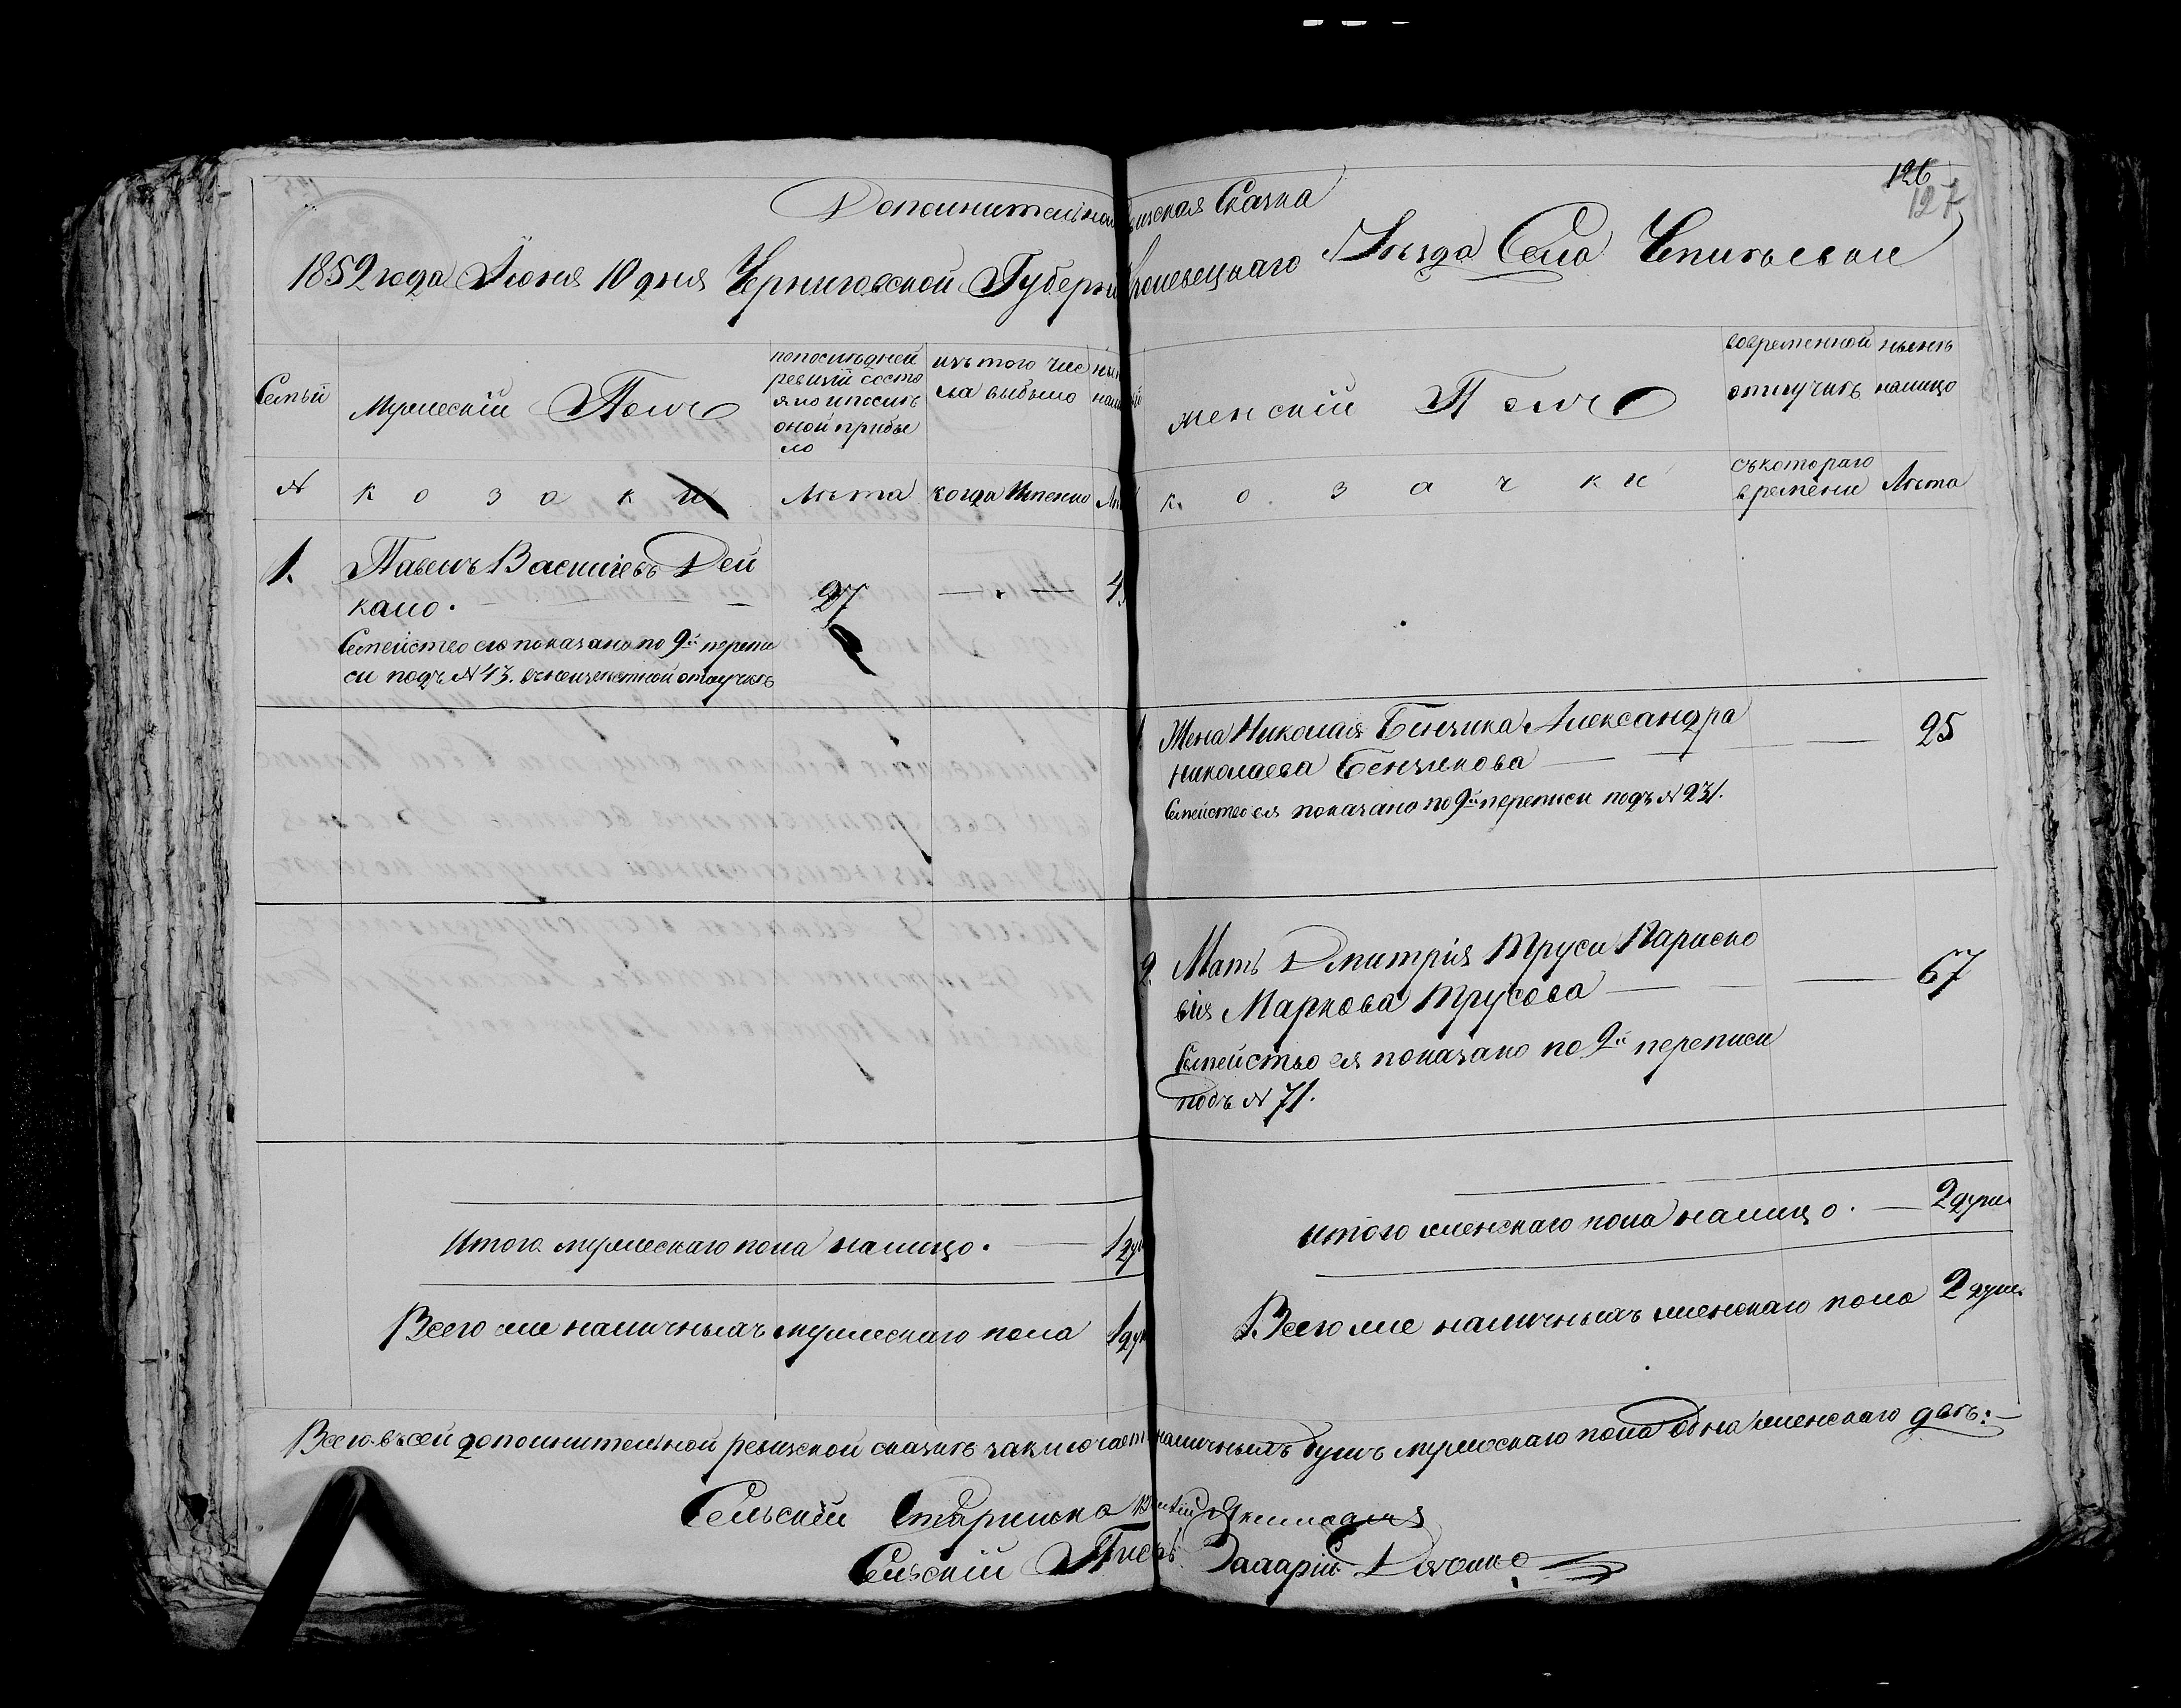 126
127
Дополнительная Ревизская Сказка
1859 года Июня 10 дня Черниговской Губерніи Кролевецкаго Уѣзда Села
Семьи
Мужескій Полъ
по послѣдней
ревизіи состо
яло и послѣ
оной прибы
ло
изъ того чис
ла выбыло
Женскій Полъ
во временной
отлучкѣ
нынѣ
налицо
№
козаки
Лѣта
когда Именно
козачки
съ котораго
времени
Лѣта
1.
Павелъ Васильевъ Дей
кало.
27
Семейство его показано по 9й перепи
си подъ № 43. въ неизвѣстной отлучкѣ
Жена Николая Бензика Александра
Николаева Бензикова
25
Семейство ея показано по 9й переписи подъ № 231.
2. Мать Дмитрія Труси Параско
вія Маркова Трусова
67
Семейство ея показано по 9й переписи
подъ № 71.
Итого мужескаго пола налицо. 1 ду
Итого женскаго пола налицо. 2 души
Всего же наличныхъ мужескаго пола 1 ду
Всего же наличныхъ женскаго пола 2 души
Всего въ сей дополнительной ревизской сказкѣ заключает наличныхъ душъ мужескаго пола одна женскаго двѣ:
Сельскій Старшина
Сельскій Писарь